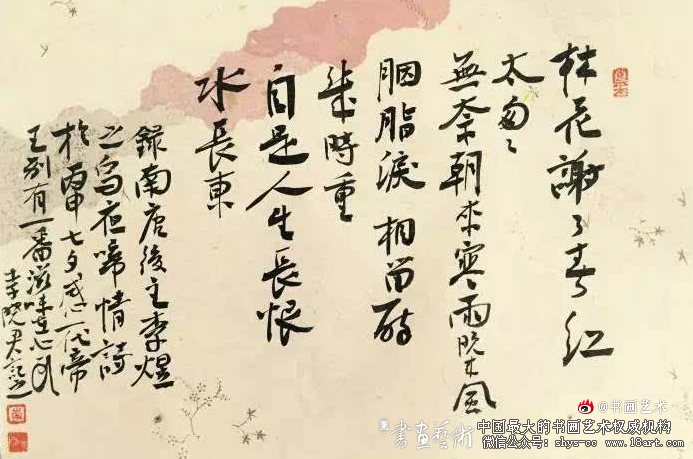 林花謝了春红
太匆〻
無奈朝来寒雨晚来風
胭脂淚相留醉
幾時重
自是人生長恨
水長東
錄南唐後主李煜
之烏夜啼情詩
於丙申七夕感一代帝
王别有一番滋味在心
李晓君記
@书画艺术
書画藝術
中国最大的书画艺术权威机构
微信公众号：shys-cc www.18art.com